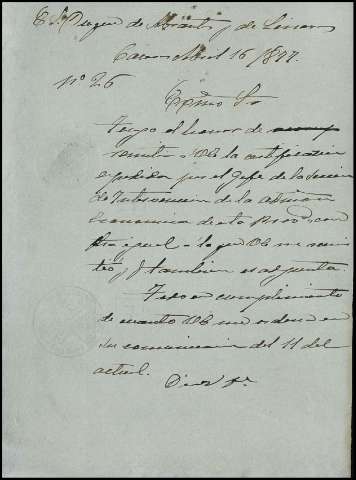 E. Sr. Duque de Abrantes y de Linares
Caceres Abril 16/877.
Nº 26
Excmo Sr
Tengo el honor de
remitir a VE la certificacion
expedida por el Gefe de la Seccion
de Intervencion de la Admon
Economica de esta Provª, con
igual a la que VE me remi
tió, y tambien es adjunta.
Todo en cumplimiento
de cuanto VE me ordena en
su comunicacion del 11 del
actual.
Dios gº.